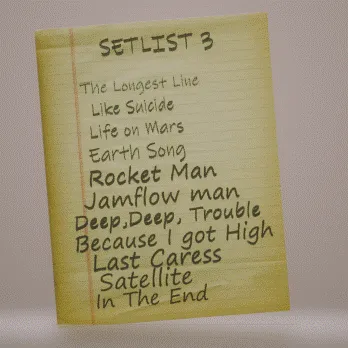 SETLIST 3
The Longest Line
Like Suicide
Life on Mars
Earth Song
Rocket Man
Jamflow man
Deep,Deep, Trouble
Because I got High
Last Caress
Satellite
In The End